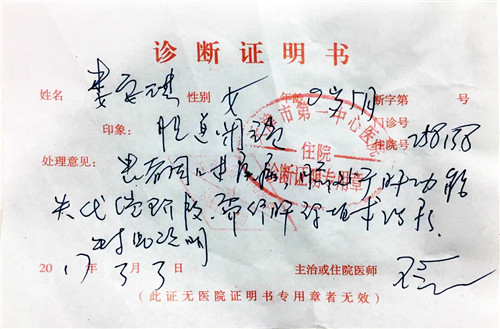 诊断证明书
姓名 性别 女 年龄 岁5月 断字第 号
门诊号
印象: 胆道闭锁 住院号 258138
市第一中心医院
住院
诊断证明专用章
处理意见: 患者因 疾病, 肝功能
失代偿阶段, 需行肝移植术治疗.
特此证明
2017年3月3日 主治或住院医师
(此证无医院证明书专用章者无效)